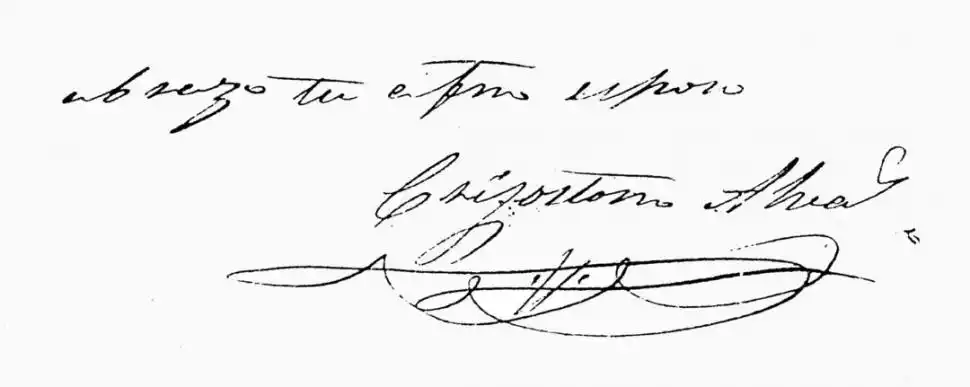 abrazo tu afmo esposo
Crisostomo Alvaz